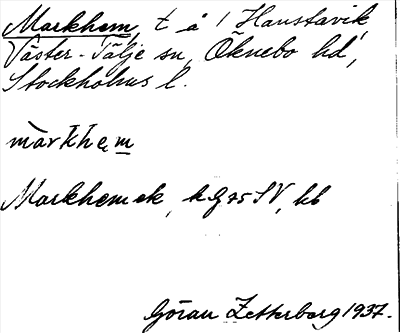 Markhem, t å 1 Hanstavik,
Väster-Tälje sn, Öknebo hd,
Stockholms l.
màrkhęm
Markhem ek, kG 95 SV, bb
Göran Zetterberg 1937.